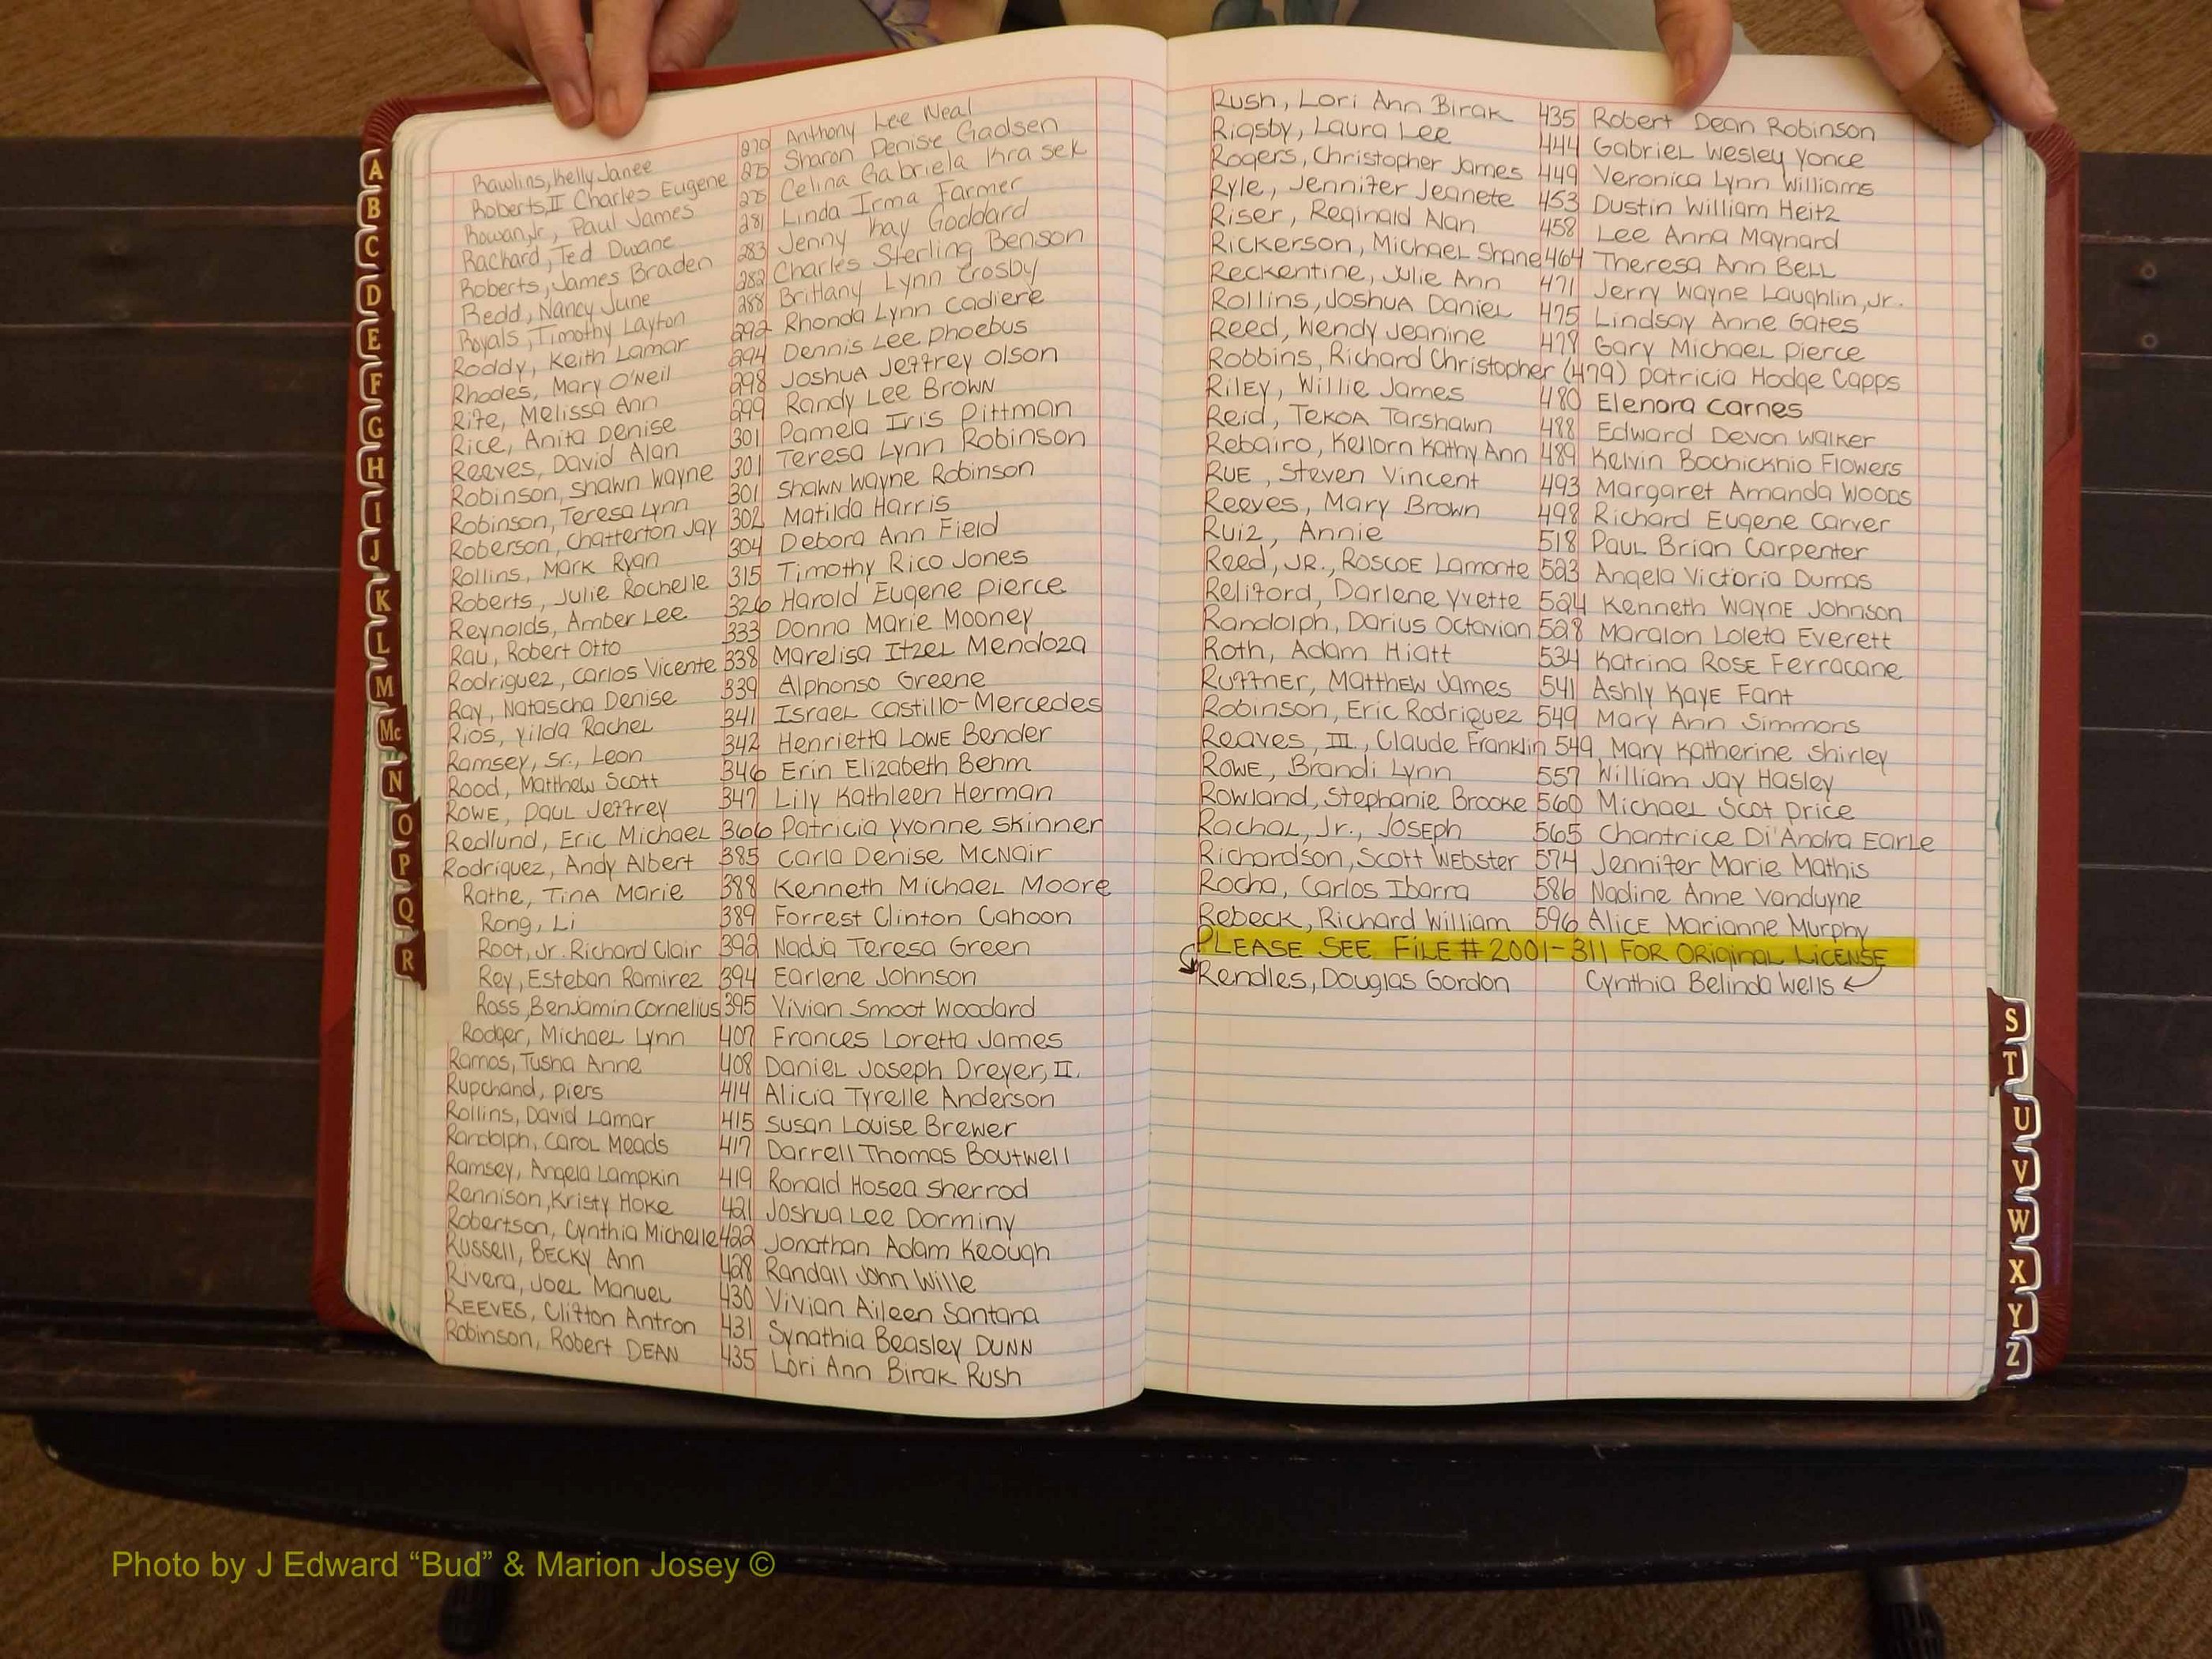 Rawlins, Kelly Janee 270 Anthony Lee Neal
Roberts, II Charles Eugene 275 Sharon Denise Gadsen
Rowan, Jr., Paul James 275 Celina Gabriela Krasek
Rachard, Ted Dwane 281 Linda Irma Farmer
Roberts, James Braden 283 Jenny Kay Goddard
Redd, Nancy June 282 Charles Sterling Benson
Royals, Timothy Layton 288 Brittany Lynn Crosby
Roddy, Keith Lamar 292 Rhonda Lynn Cadiere
Rhodes, Mary O'Neil 294 Dennis Lee Phoebus
Rife, Melissa Ann 298 Joshua Jeffrey Olson
Rice, Anita Denise 299 Randy Lee Brown
Reeves, David Alan 301 Pamela Iris Pittman
Robinson, Shawn Wayne 301 Teresa Lynn Robinson
Robinson, Teresa Lynn 301 Shawn Wayne Robinson
Roberson, Chatterton Jay 302 Matilda Harris
Rollins, Mark Ryan 304 Debora Ann Field
Roberts, Julie Rochelle 315 Timothy Rico Jones
Reynolds, Amber Lee 326 Harold Eugene Pierce
Rau, Robert Otto 333 Donna Marie Mooney
Rodriguez, Carlos Vicente 338 Marelisa Itzel Mendoza
Ray, Natascha Denise 339 Alphonso Greene
Rios, Yilda Rachel 341 Israel Castillo-Mercedes
Ramsey, Sr., Leon 342 Henrietta Lowe Bender
Rood, Matthew Scott 346 Erin Elizabeth Behm
Rowe, Paul Jeffrey 347 Lily Kathleen Herman
Redlund, Eric Michael 366 Patricia Yvonne Skinner
Rodriquez, Andy Albert 385 Carla Denise McNair
Rathe, Tina Marie 388 Kenneth Michael Moore
Rong, Li 389 Forrest Clinton Cahoon
Root, Jr. Richard Clair 392 Nadja Teresa Green
Rey, Esteban Ramirez 394 Earlene Johnson
Ross, Benjamin Cornelius 395 Vivian Smoot Woodard
Rodger, Michael Lynn 407 Frances Loretta James
Ramos, Tusha Anne 408 Daniel Joseph Dreyer, II.
Rupchand, Piers 414 Alicia Tyrelle Anderson
Rollins, David Lamar 415 Susan Louise Brewer
Randolph, Carol Meads 417 Darrell Thomas Boutwell
Ramsey, Angela Lampkin 419 Ronald Hosea Sherrod
Rennison, Kristy Hoke 421 Joshua Lee Dorminy
Robertson, Cynthia Michelle 422 Jonathan Adam Keough
Russell, Becky Ann 428 Randall John Wille
Rivera, Joel Manuel 430 Vivian Aileen Santana
Reeves, Clifton Antron 431 Synathia Beasley Dunn
Robinson, Robert Dean 435 Lori Ann Birak Rush
Rush, Lori Ann Birak 435 Robert Dean Robinson
Rigsby, Laura Lee 444 Gabriel Wesley Yonce
Rogers, Christopher James 449 Veronica Lynn Williams
Ryle, Jennifer Jeanete 453 Dustin William Heitz
Riser, Reginald Alan 458 Lee Anna Maynard
Rickerson, Michael Shane 464 Theresa Ann Bell
Reckentine, Julie Ann 471 Jerry Wayne Laughlin, Jr.
Rollins, Joshua Daniel 475 Lindsay Anne Gates
Reed, Wendy Jeanine 478 Gary Michael Pierce
Robbins, Richard Christopher (479) Patricia Hodge Capps
Riley, Willie James 480 Elenora Carnes
Reid, Tekoa Tarshawn 488 Edward Devon Walker
Rebairo, Kellorn Kathy Ann 489 Kelvin Bochicknio Flowers
Rue, Steven Vincent 493 Margaret Amanda Woods
Reeves, Mary Brown 498 Richard Eugene Carver
Ruiz, Annie 518 Paul Brian Carpenter
Reed, Jr., Roscoe Lamonte 523 Angela Victoria Dumas
Reliford, Darlene Yvette 524 Kenneth Wayne Johnson
Randolph, Darius Octavian 528 Maralon Loleta Everett
Roth, Adam Hiatt 534 Katrina Rose Ferracane
Ruffner, Matthew James 541 Ashly Kaye Fant
Robinson, Eric Rodriquez 549 Mary Ann Simmons
Reaves, III., Claude Franklin 549 Mary Katherine Shirley
Rowe, Brandi Lynn 557 William Jay Hasley
Rowland, Stephanie Brooke 560 Michael Scot Price
Rachal, Jr., Joseph 565 Chantrice Di'Andra Earle
Richardson, Scott Webster 574 Jennifer Marie Mathis
Rocha, Carlos Ibarra 586 Nadine Anne Vanduyne
Rebeck, Richard William 596 Alice Marianne Murphy
PLEASE SEE FILE # 2001-311 FOR ORIGINAL LICENSE
Rendles, Douglas Gordon Cynthia Belinda Wells
A
B
C
D
E
F
G
H
I
J
K
L
M
Mc
N
O
P
Q
R
S
T
U
V
W
X
Y
Z
Photo by J Edward “Bud” & Marion Josey ©